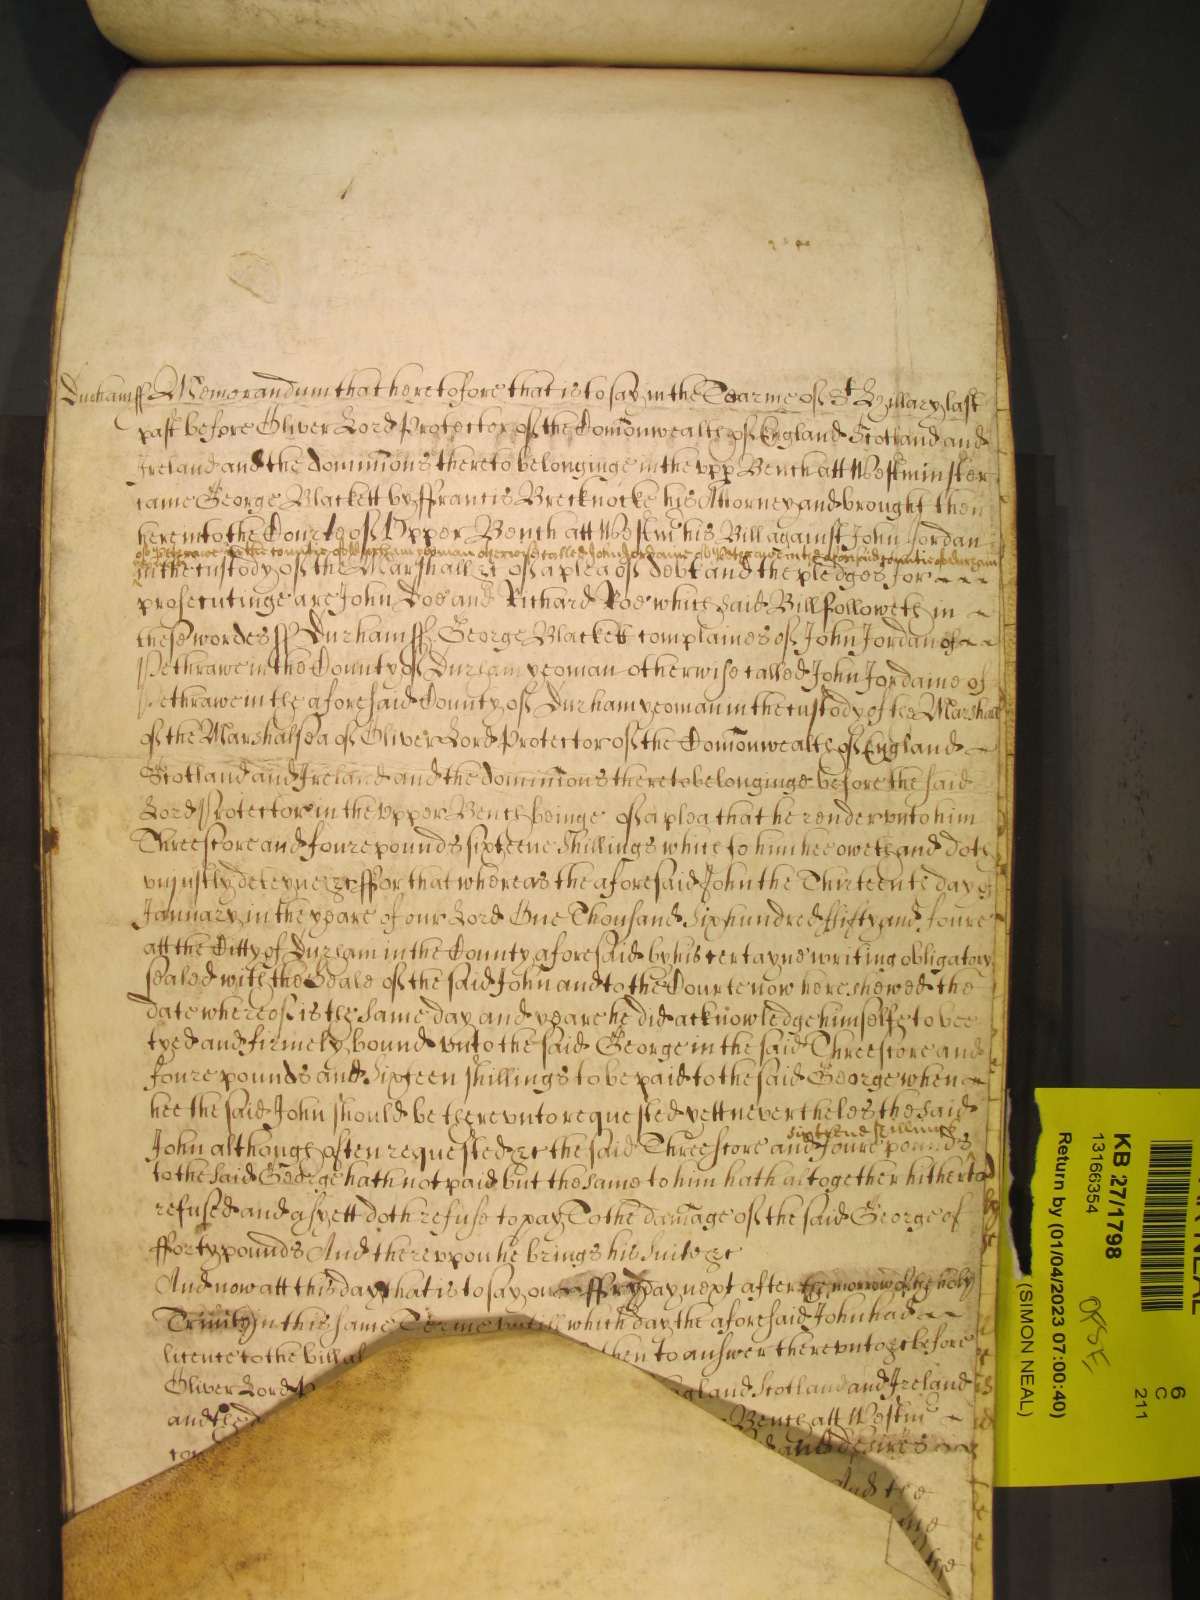 Durham ss Memorandum that heretofore that is to say in the Tearme of St Hillary last
past before Oliver Lord Protector of the Comonwealth of England Scotland and
Ireland and the dominions thereto belonginge in the upp Bench att Westminster
came George Blackett by Ffrancis Brecknocke his Attorney and brought then
here into the Courte of Upper Bench att Westmr his Bill against John Jordan
of Pethrawe in the countie of durham yeoman otherwise called John Jordaine of Pethrawe in the aforesaid countie of durham
in the custody of the Marshall &c of a plea of debt and the pledges for
prosecutinge are John Doe and Richard Roe which said Bill followeth in
these wordes ss Durham ss George Blackett complaines of John Jordan of
Pethrawe in the County of Durham yeoman otherwise called John Jordaine of
Pethrawe in the aforesaid County of Durham yeoman in the custody of the Marshall
of the Marshalsea of Oliver Lord Protector of the Comonwealth of England
Scotland and Ireland and the dominions thereto belonginge before the said
Lord Protector in the upper Bench beinge of a plea that he render unto him
Threescore and foure pounds sixteene shillings which to him hee oweth and doth
unjustly deteyne &c Ffor that whereas the aforesaid John the Thirteenth day of
January in the yeare of our Lord One Thousand Six hundred ffifty and foure
att the Citty of Durham in the County aforesaid by his certayne writing obligatory
sealed with the Seale of the said John and to the Courte now here shewed the
date whereof is the same day and yeare he did acknowledge himselfe to bee
tyed and firmely bound unto the said George in the said Threescore and
foure pounds and Sixteen shillings to be paid to the said George when
hee the said John should be thereunto requested yett nevertheles the said
sixteene shillings
John although often requested &c the said Threescore and foure pounds
to the said George hath not paid but the same to him hath altogether hitherto
refused and as yett doth refuse to pay To the damage of the said George of
fforty pounds And thereupon he brings his suite &c
And now att this day that is to say on ffryday next after the morrow of the holy
Trinity in this same Terme untill which day the aforesaid John had
licence to the bill then to answer thereunto &c before
Oliver Lord England Scotland and Ireland
and the Bench att Westmr
and desires
And the
KB 27/1798
13166354
Return by (01/04/2023 07:00:40)
(SIMON NEAL)
6
C
211